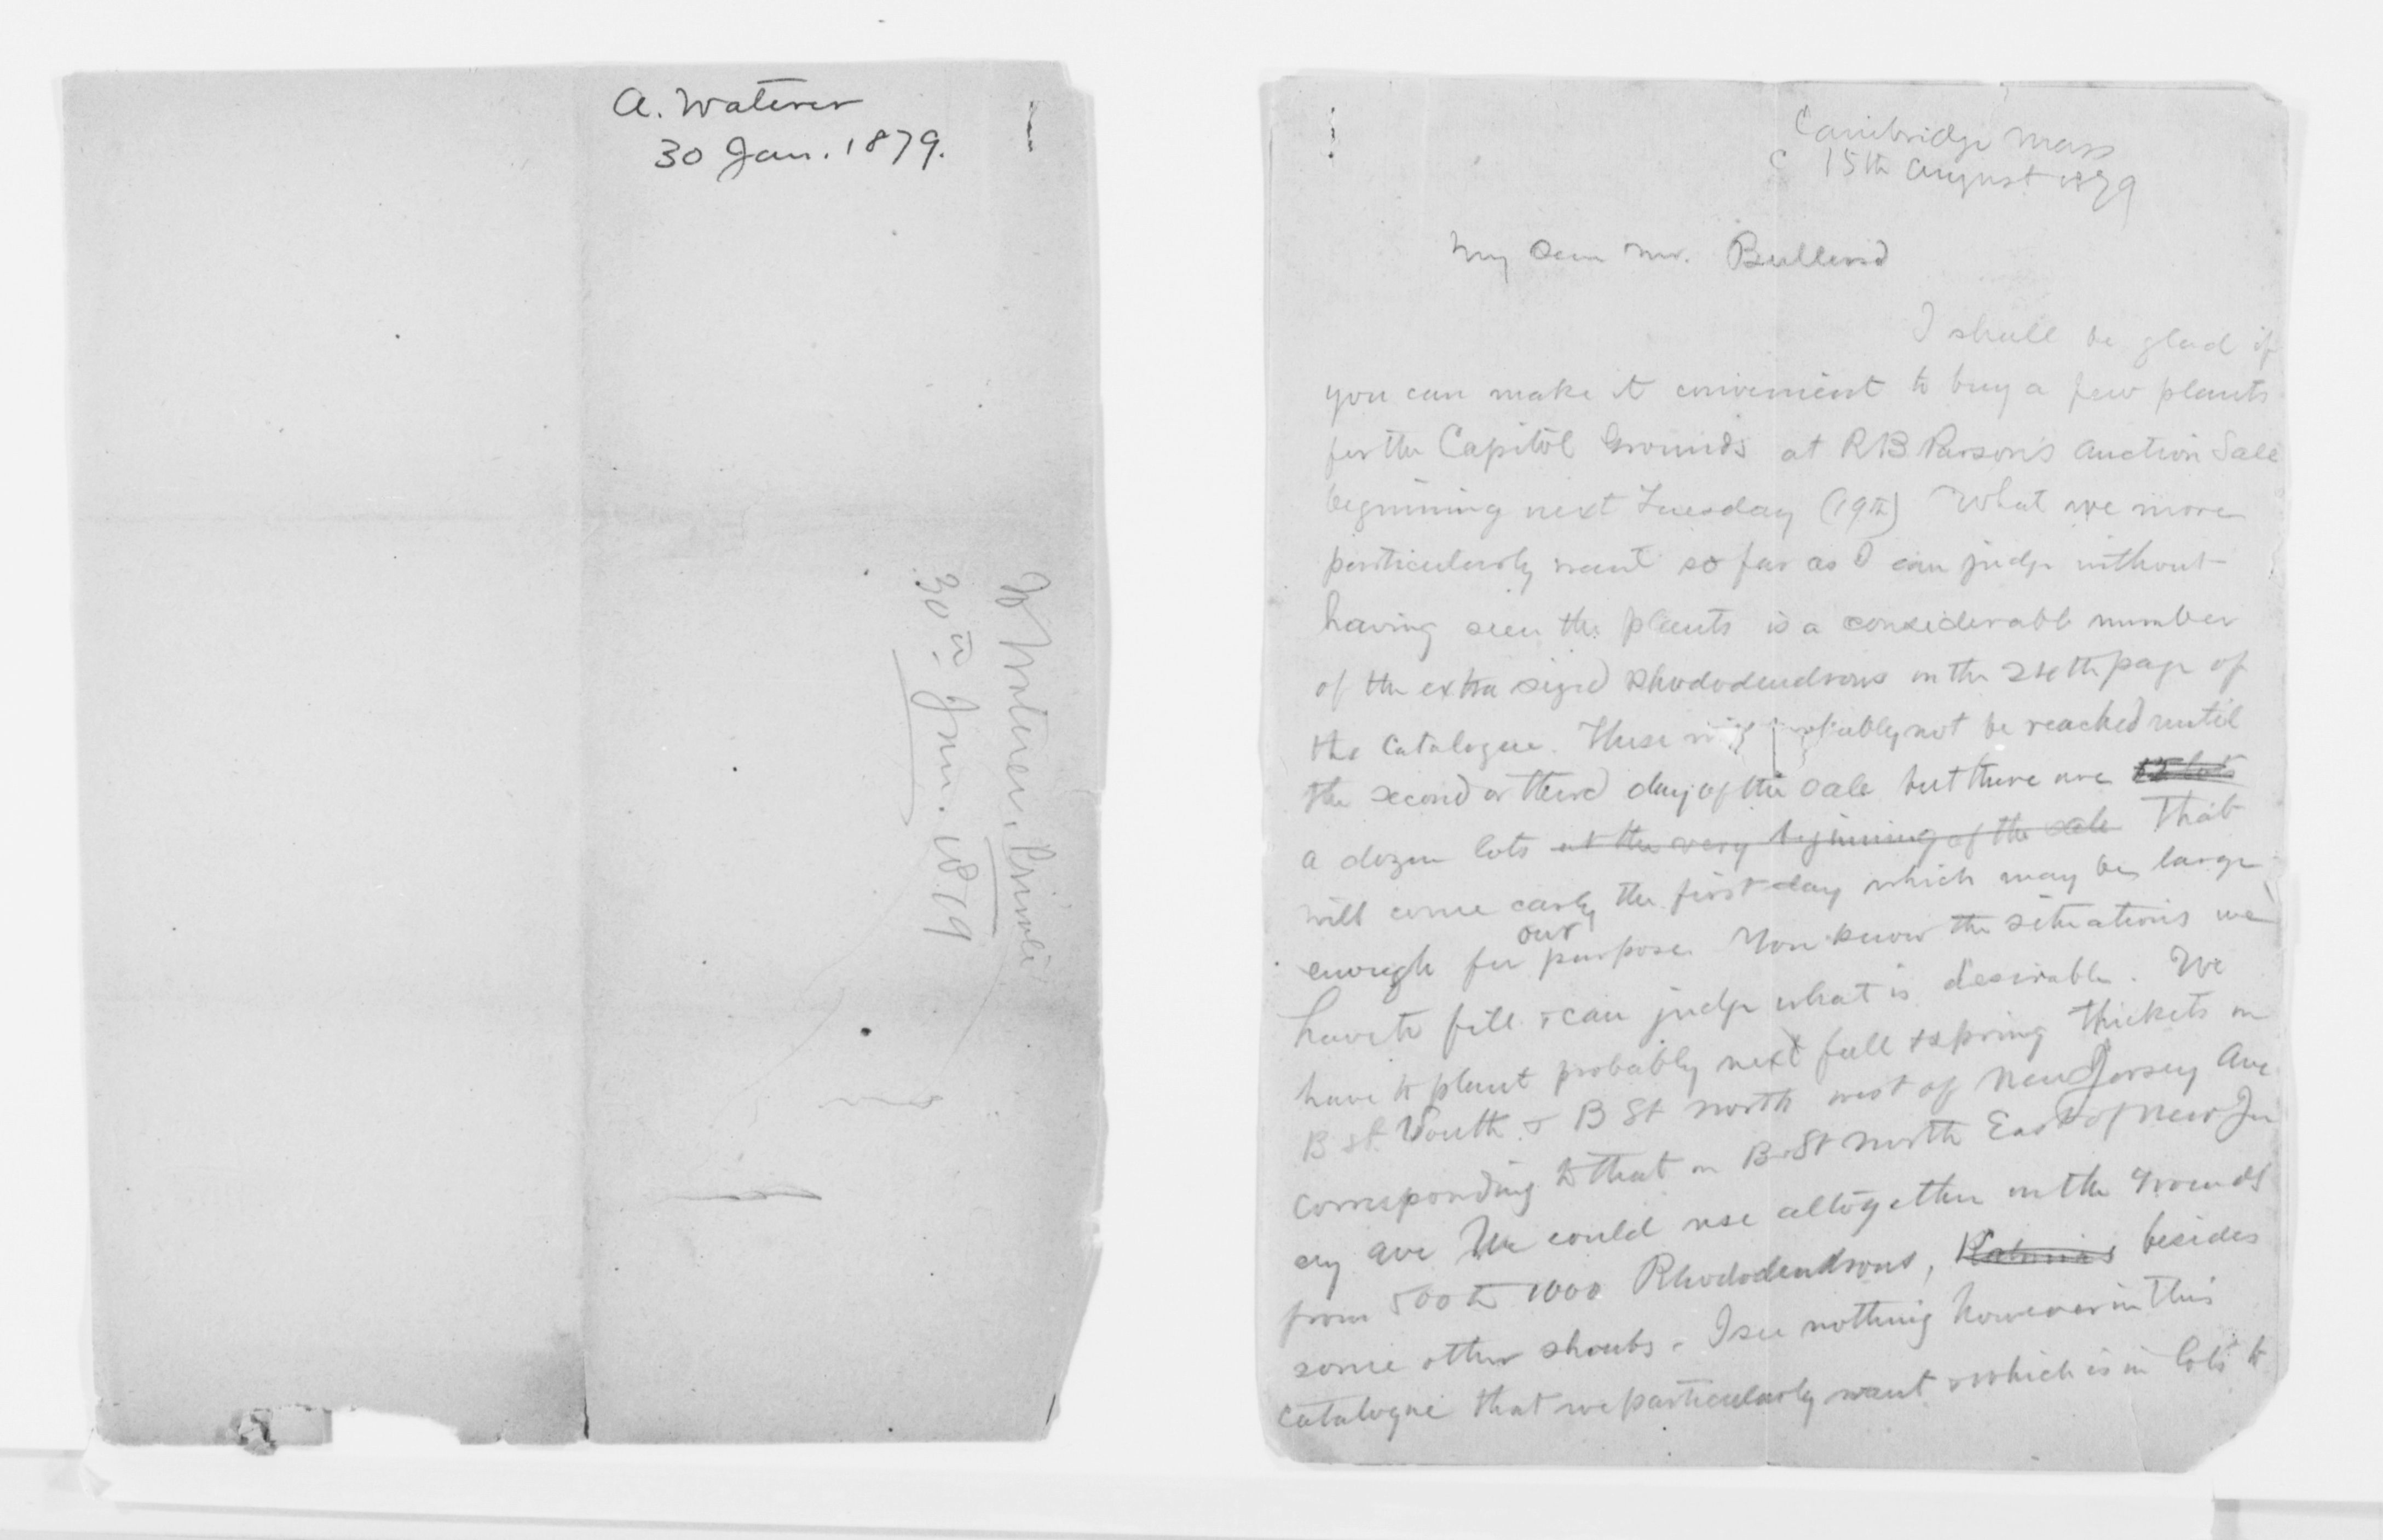 A. Waterer
30 Jan. 1879.
Waterer,
30th Jan. 1879
Cambridge Mass
15th August 1879
My dear Mr. Bullard
I shall be glad if
you can make it convenient to buy a few plants
for the Capitol Grounds at RB Parson's Auction Sale
beginning next Tuesday (19th) What we more
particularly want so far as I can judge without
having seen the plants is a considerable number
of the extra sized Rhododendrons on the 24th page of
the Catalogue. These will probably not be reached until
the second or third day of the sale but there are
a dozen lots at the very beginning of the sale That
will come early the first day which may be large
enough for our purpose. You know the situations we
have to fill & can judge what is desirable. We
have to plant probably next fall & spring thickets on
B st. South & B St north west of New Jersey Ave
corresponding to that on B. St north East of New Jer
ey Ave We could use altogether on the grounds
from 500 to 1000 Rhododendrons, Kalmias besides
some other shrubs. I see nothing however in this
catalogue that we particularly want & which is in lots to